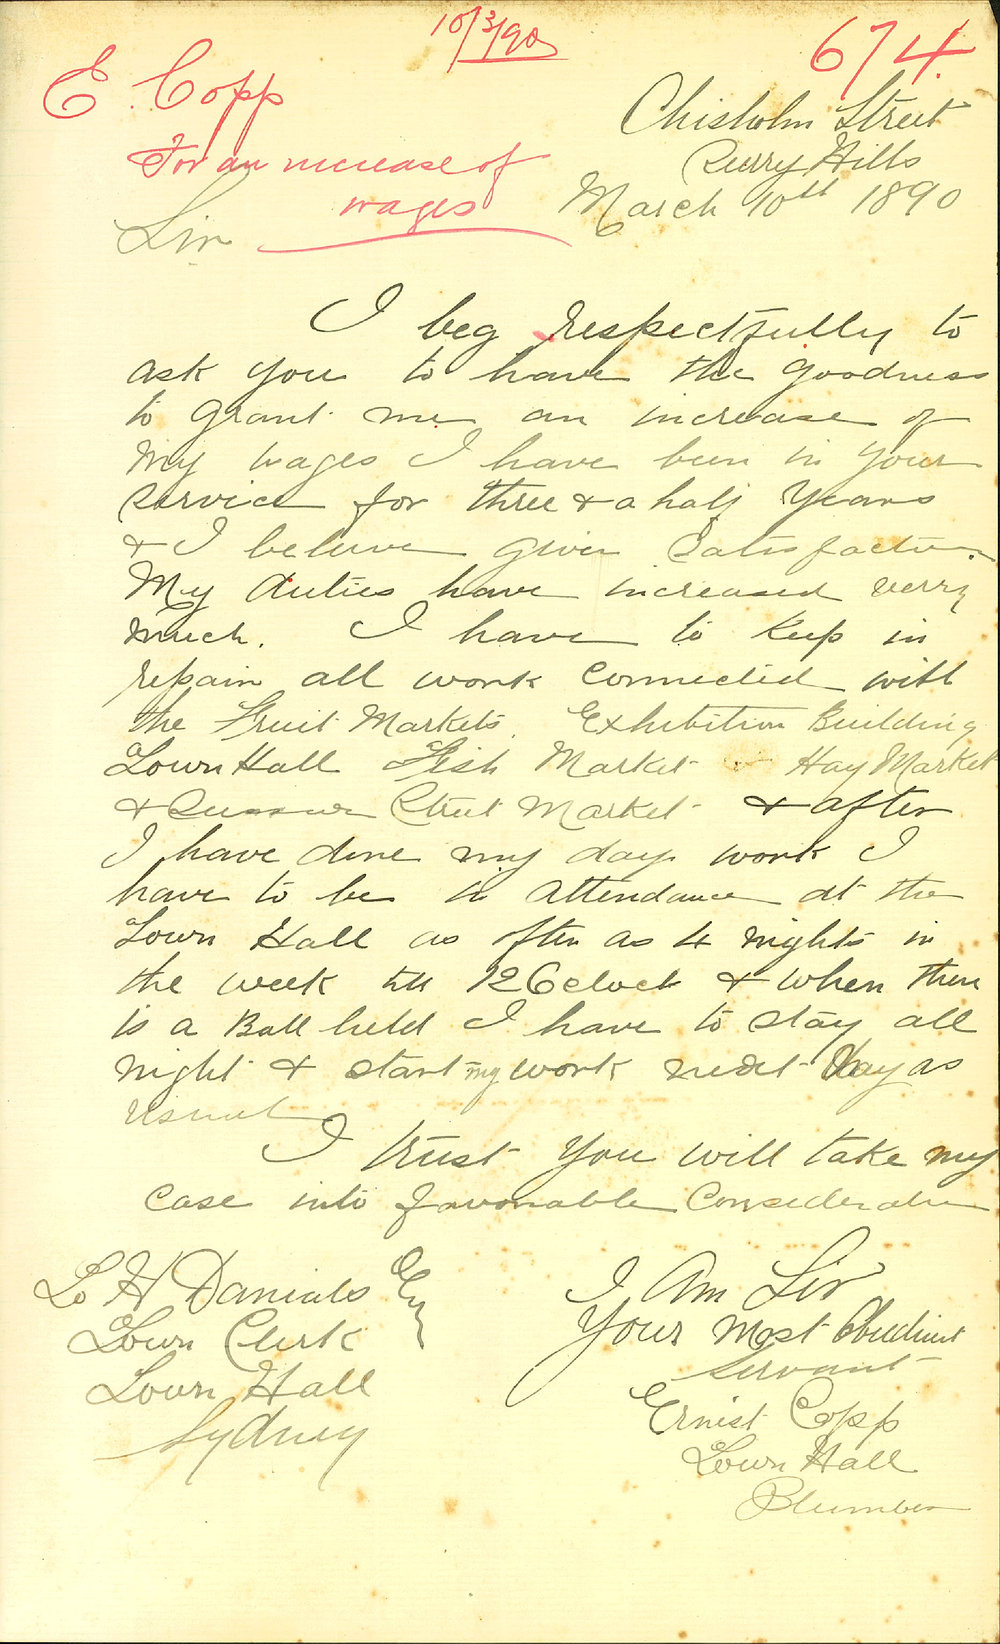 10/3/90
674.
E. Copp
For an increase of
wages
Chisholm Street
Surry Hills
March 10th 1890
Sir
I beg respectfully to
ask you to have the goodness
to grant me an increase of
my wages I have been in your
service for three & a half years
& I believe given Satisfaction.
My duties have increased verry
much. I have to keep in
repair all work connected with
the Fruit Markets. Exhibition Building
Town Hall Fish Market Hay Market
& Sussex Street Market & after
I have done my days work I
have to be in attendance at the
Town Hall as often as 4 nights in
the week till 12 Oclock & when there
is a Ball held I have to stay all
night & start my work next day as
usual
I trust you will take my
case into favorable Consideration
I Am Sir
Your Most Obedient
Servant
Ernest Copp
Town Hall
Plumber
H Daniels Esq
Town Clerk
Town Hall
Sydney